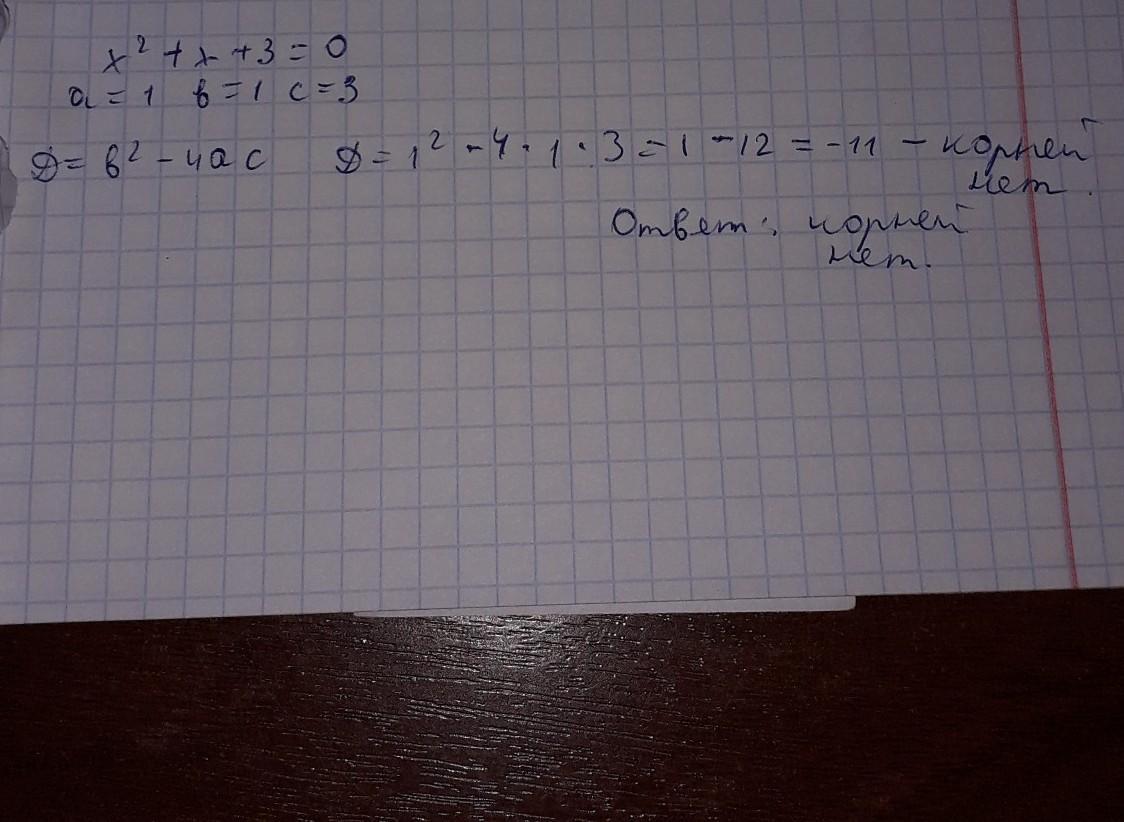 x² + x + 3 = 0
a = 1 в = 1 c = 3
D = в² - 4ac D = 1² - 4 · 1 · 3 = 1 - 12 = -11 - корней
нет.
Ответ: корней
нет.